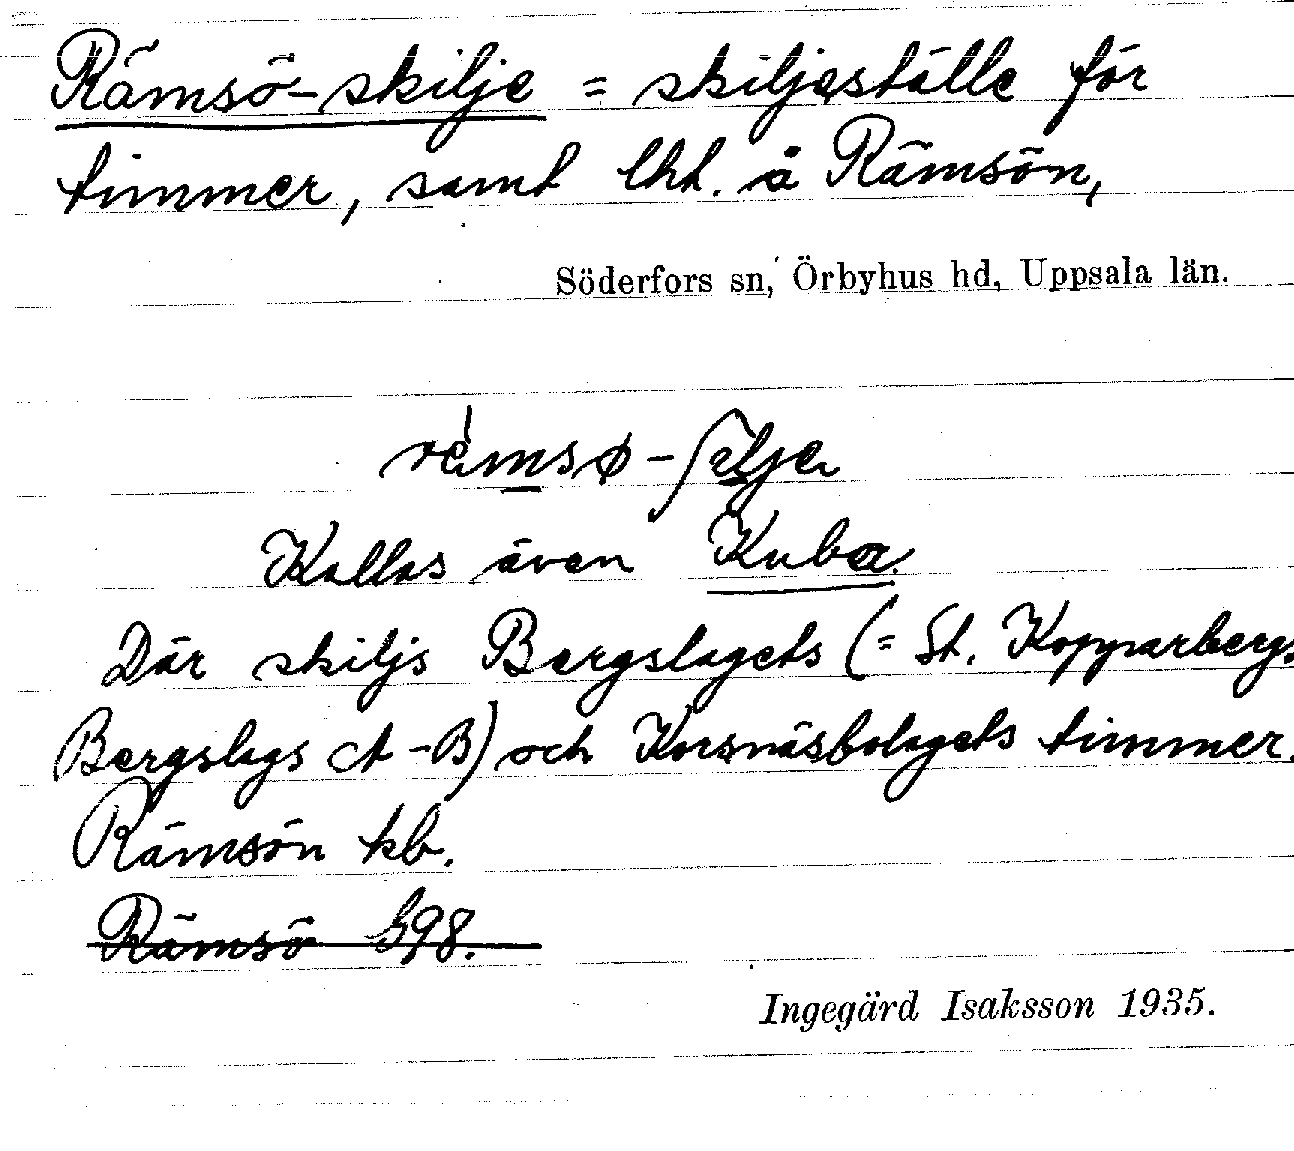 Rämsö-skilje = skiljeställe för
timmer, samt lht. å Rämsön,
Söderfors sn, Örbyhus hd, Uppsala län.
Kallas även Kuba.
Där skiljs Bergslagets (= St. Kopparbergs
Bergslags A-B) och Korsnäsbolagets timmer.
Rämsön kb.
Rämsö S98.
Ingegärd Isaksson 1935.